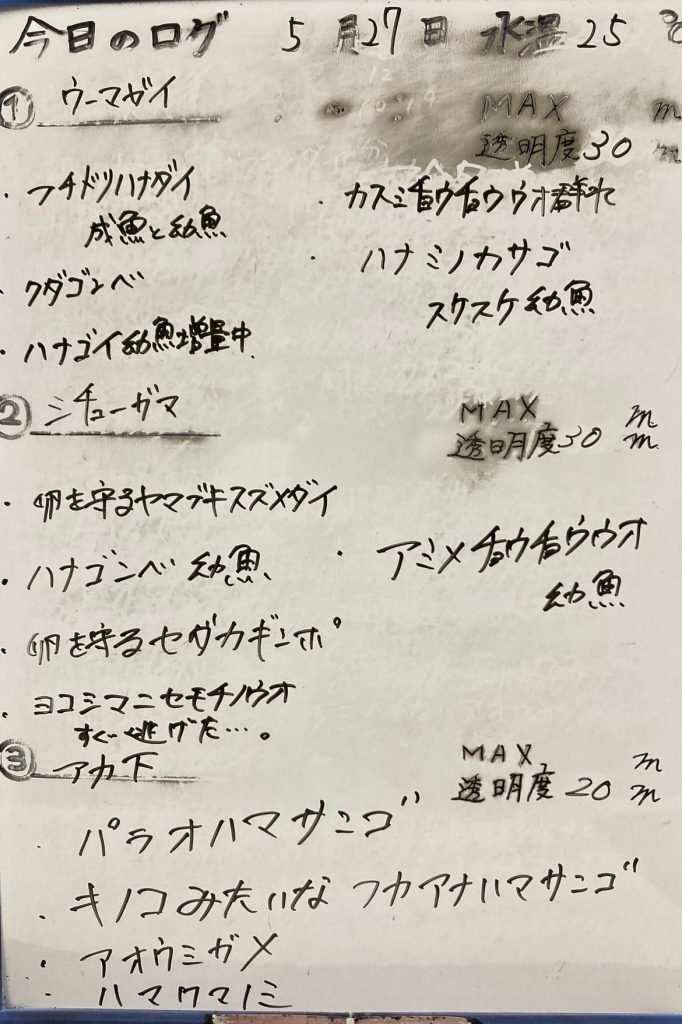 今日のログ 5月27日 水温25℃
① ウーマガイ
MAX m
透明度30m
・フチドリハナダイ
成魚と幼魚
・クダゴンベ
・ハナゴイ幼魚増量中
・カスミチョウチョウウオ群れ
・ハナミノカサゴ
スケスケ幼魚
② シチューガマ
MAX m
透明度30m
・卵を守るヤマブキスズメダイ
・ハナゴンベ 幼魚
・卵を守るセダカギンポ
・ヨコシマニセモチノウオ
すぐ逃げた…。
・アミメチョウチョウウオ
幼魚
③ アカ下
MAX m
透明度20m
・パラオハマサンゴ
・キノコみたいなフカアナハマサンゴ
・アオウミガメ
・ハマクマノミ